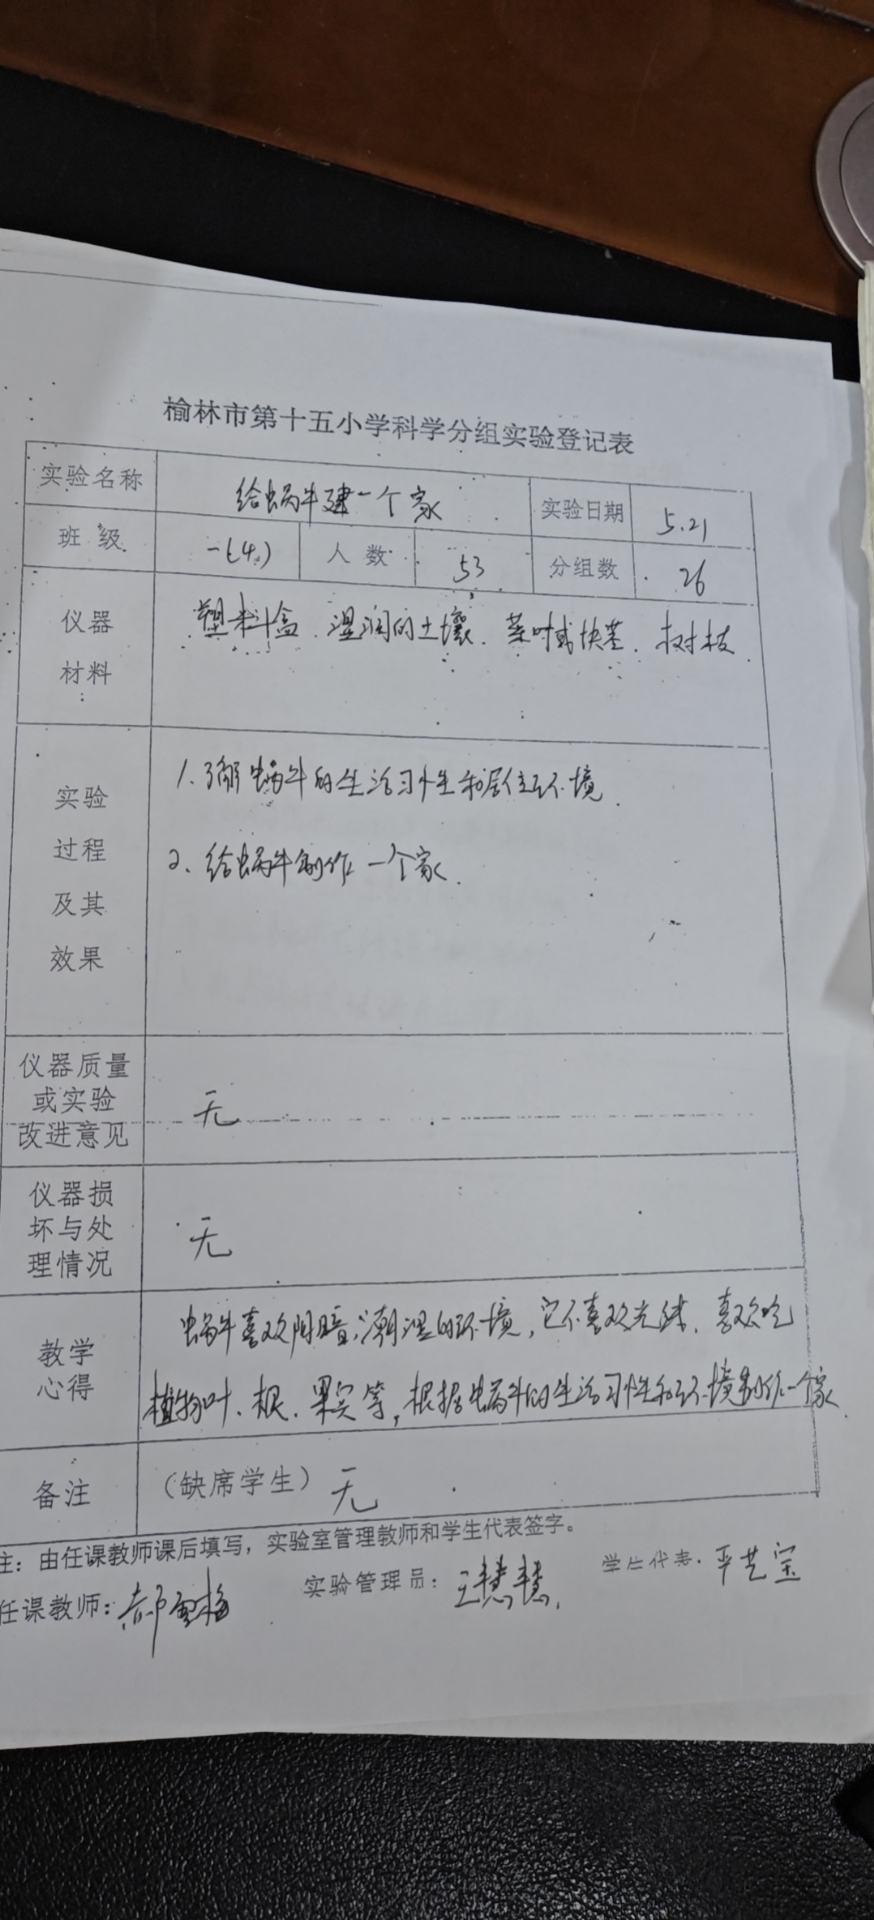 榆林市第十五小学科学分组实验登记表
实验名称 给蜗牛建一个家 实验日期 5.21
班级 一(4) 人数 53 分组数 26
仪器 塑料盒 湿润的土壤. 菜叶或块茎. 树枝
材料
实验 1.了解蜗牛的生活习性和居住环境
过程 2、给蜗牛制作一个家.
及其
效果
仪器质量
或实验 无
改进意见
仪器损
坏与处 无
理情况
教学 蜗牛喜欢阴暗、潮湿的环境,它不喜欢光线,喜欢吃
心得 植物叶、根、果实等,根据蜗牛的生活习性和环境制作一个家
备注 (缺席学生) 无
注：由任课教师课后填写，实验室管理教师和学生代表签字。
任课教师: 实验管理员: 王慧慧 学生代表: